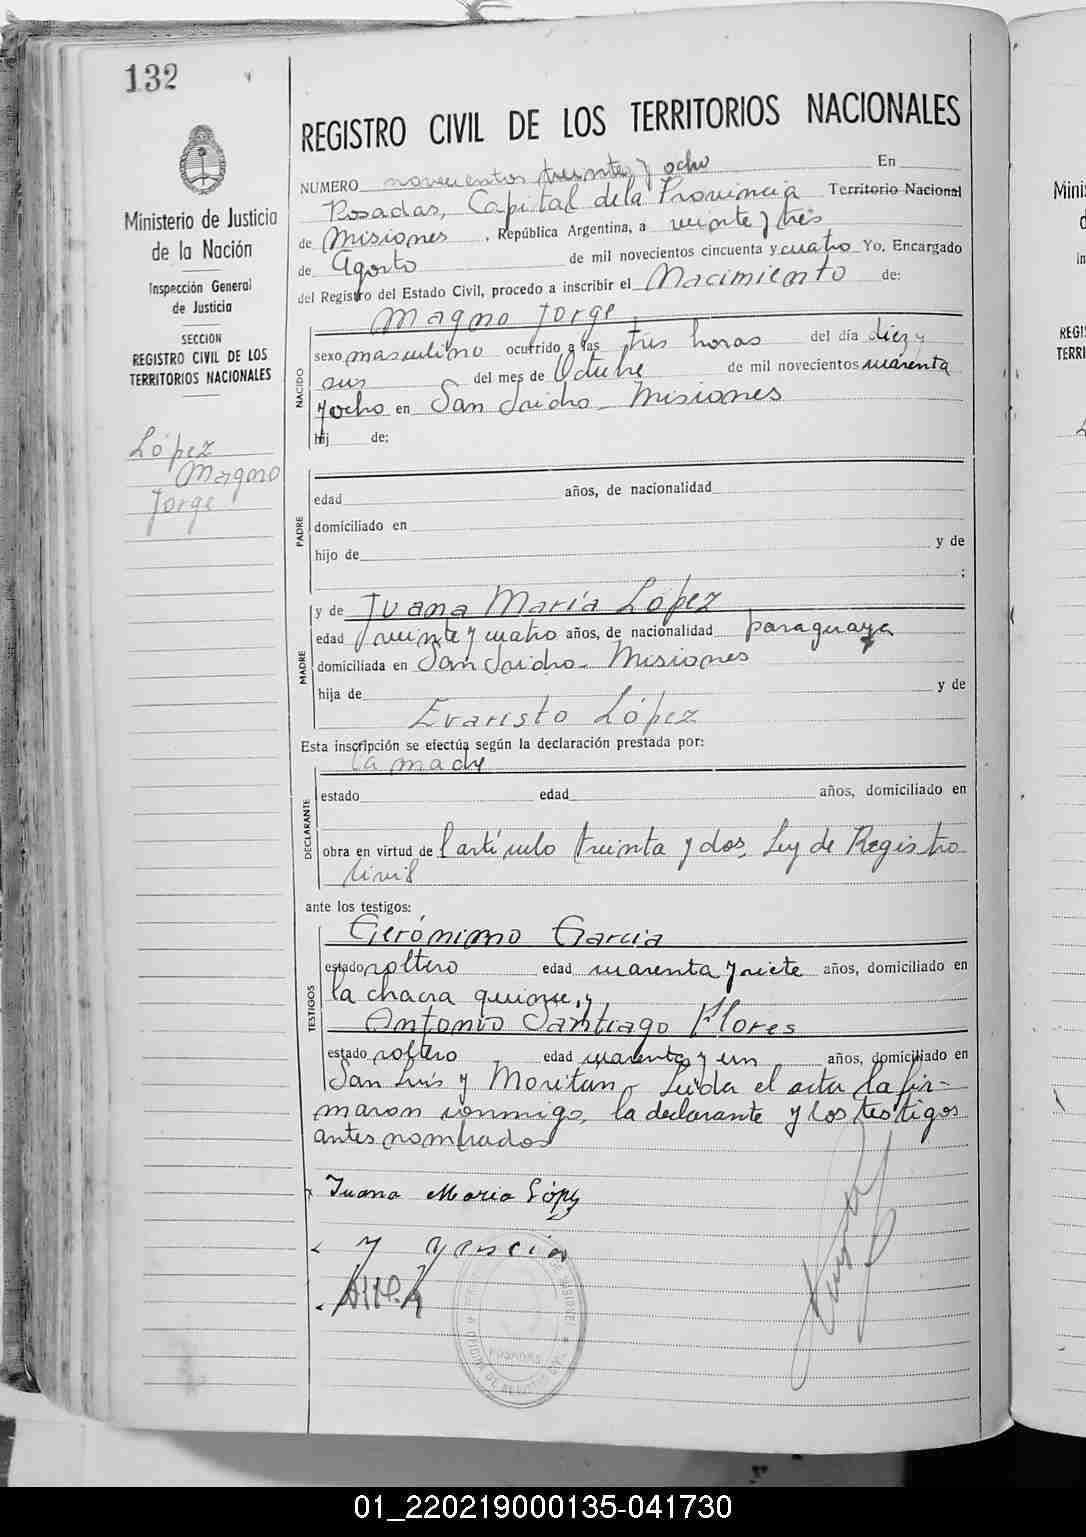 132
REGISTRO CIVIL DE LOS TERRITORIOS NACIONALES
Ministerio de Justicia
de la Nación
Inspección General
de Justicia
SECCION
REGISTRO CIVIL DE LOS
TERRITORIOS NACIONALES
López
Magno
Jorge
NUMERO novecientos treinta y ocho En
Posadas, Capital de la Provincia Territorio Nacional
de Misiones, República Argentina, a veinte y tres
de Agosto de mil novecientos cincuenta y cuatro Yo, Encargado
del Registro del Estado Civil, procedo a inscribir el Nacimiento de:
Magno Jorge
NACIDO
sexo masculino ocurrido a las tres horas del día diez y
seis del mes de Octubre de mil novecientos cuarenta
y ocho en San Isidro - Misiones
hij de:
PADRE
edad años, de nacionalidad
domiciliado en
hijo de y de
;
MADRE
y de Juana María López
edad veinte y cuatro años, de nacionalidad paraguaya
domiciliada en San Isidro - Misiones
hija de y de
Evaristo López
Esta inscripción se efectúa según la declaración prestada por:
la madre
DECLARANTE
estado edad años, domiciliado en
obra en virtud de l artículo treinta y dos, Ley de Registro
Civil
ante los testigos:
TESTIGOS
Gerónimo Garcia
estado soltero edad cuarenta y siete años, domiciliado en
la chacra quince, y
Antonio Santiago Flores
estado soltero edad cuarenta y un años, domiciliado en
San Luis y Moritán - Leída el acta la fir-
maron conmigo, la declarante y los testigos
antes nombrados
Juana Maria López
POSADAS
01_220219000135-041730